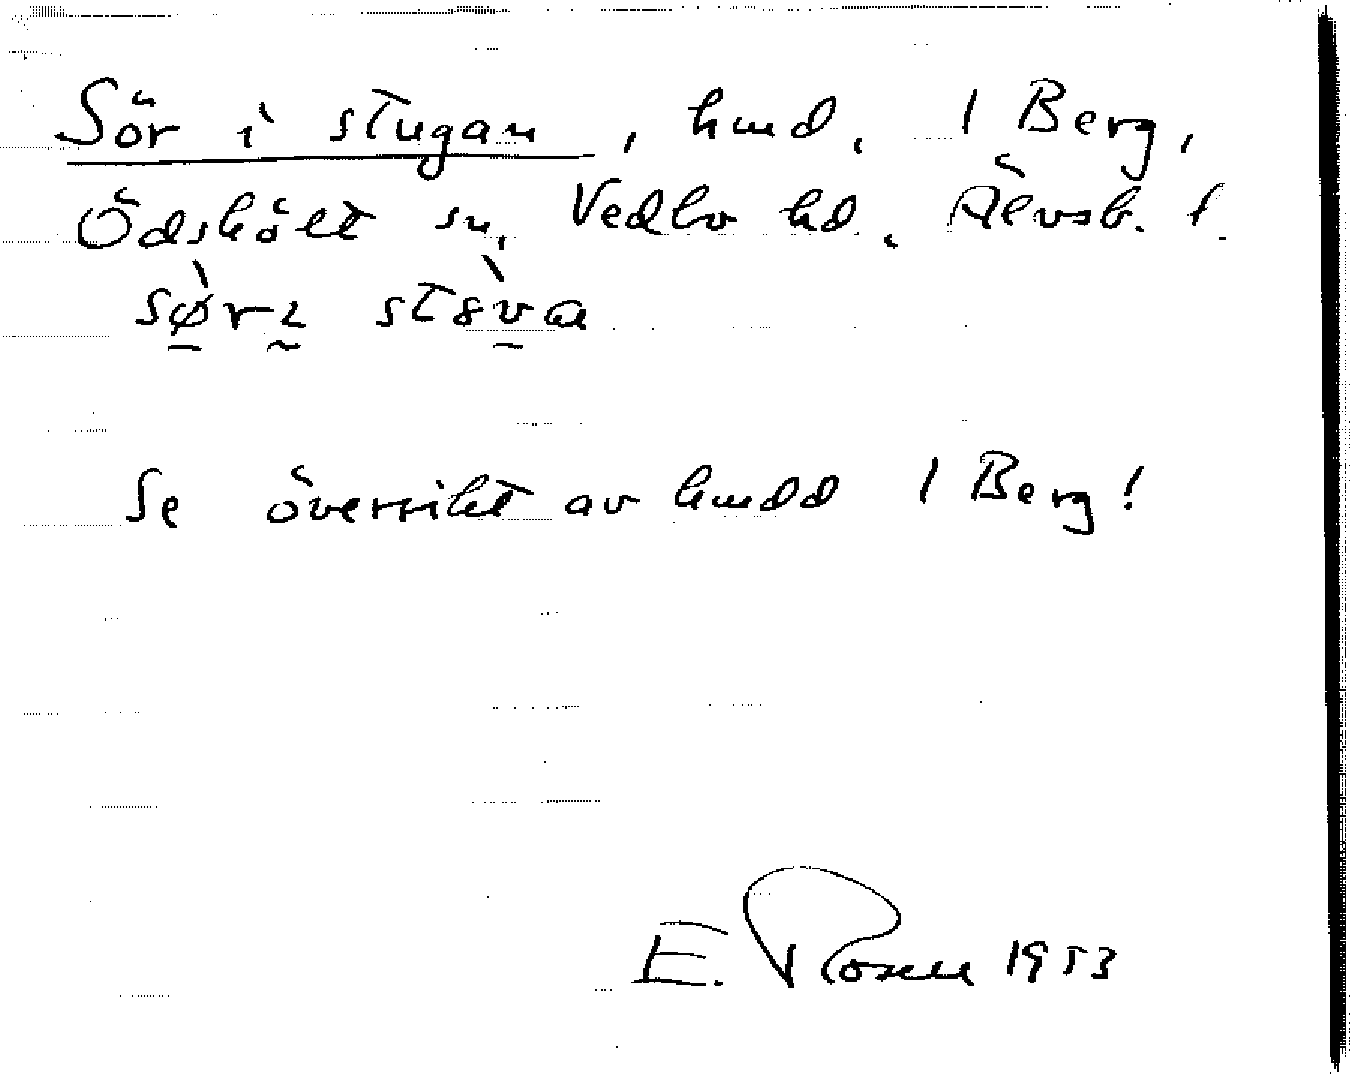 Sör i stugan, hmd. 1 Berg,
Ödskölt sn, Vedbo hd. Älvsb. l.
sør stva
Se översikt av hmdd 1 Berg!
E. Rosen 1953